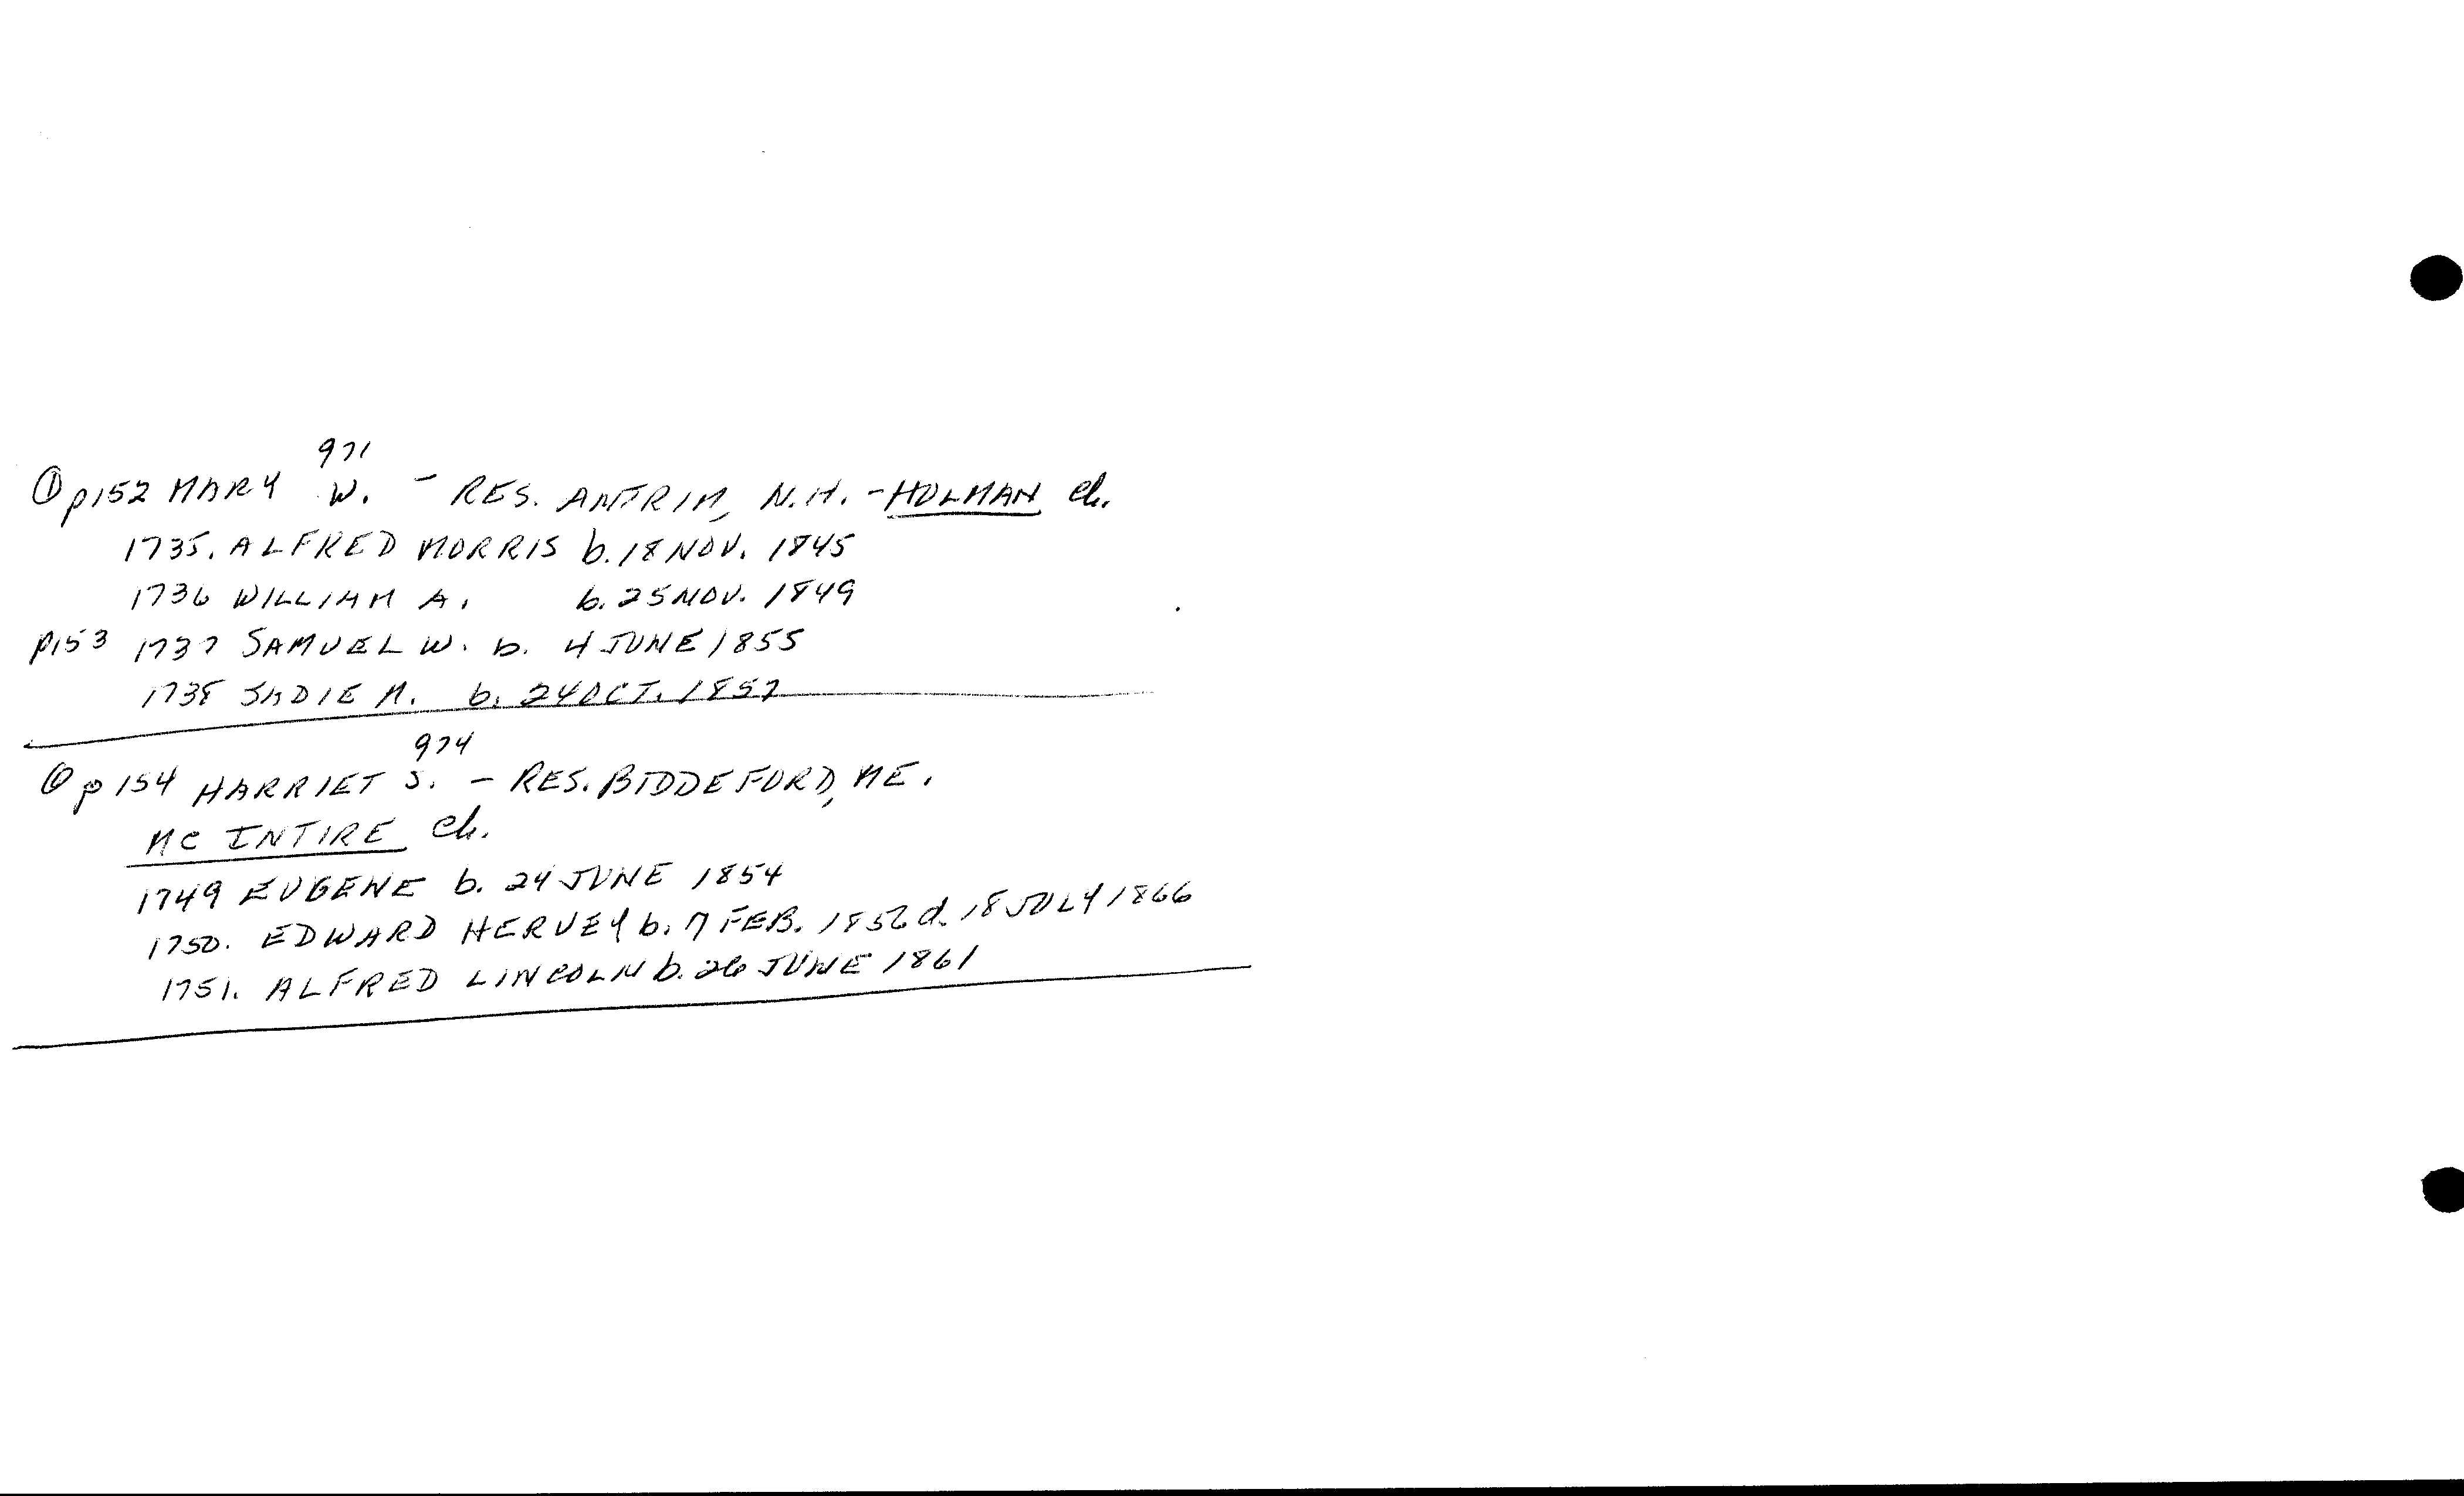 971
① p152 MARY W. - RES. ANTRIM, N.H. - HOLMAN ch.
1735. ALFRED MORRIS b. 18 NOV. 1845
1736 WILLIAM A. b. 25 NOV. 1849
p153 1737 SAMUEL W. b. 4 JUNE 1855
1738 SADIE M. b. 24 OCT. 1857
974
p 154 HARRIET S. - RES. BIDDEFORD, ME.
MC INTIRE ch.
1749 EUGENE b. 24 JUNE 1854
1750. EDWARD HERVEY b. 7 FEB. d. 18 JULY 1866
1751. ALFRED LINCOLN b. 26 JUNE 1861